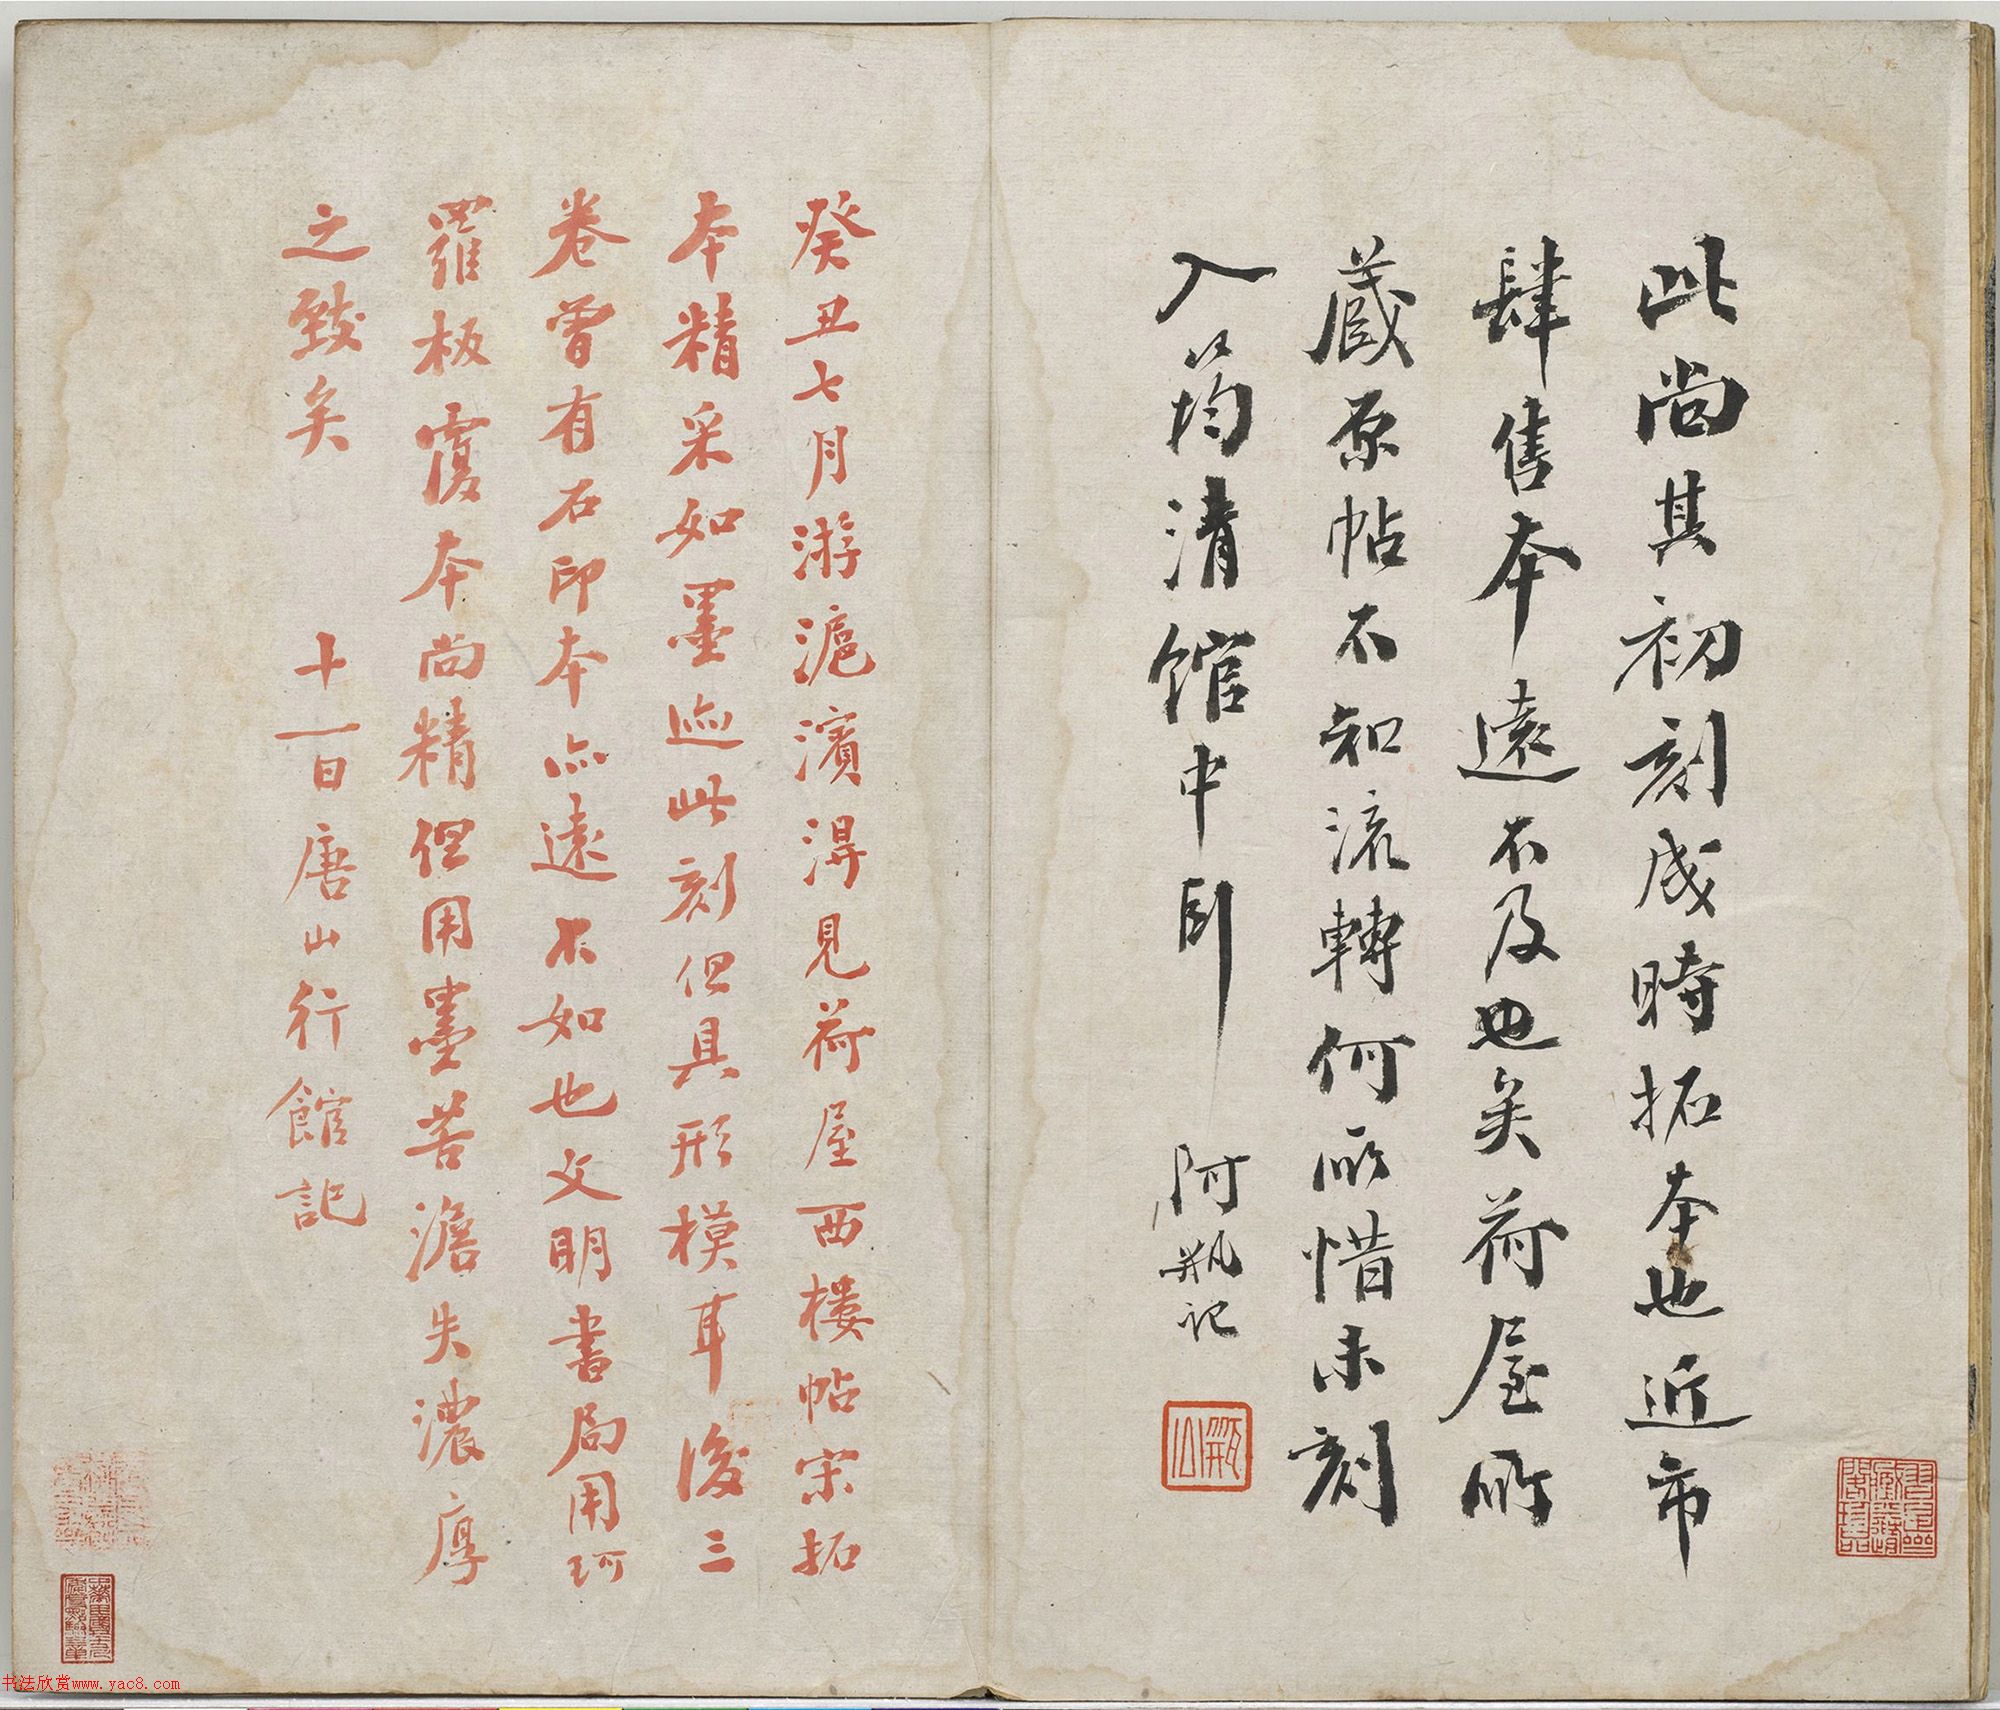 此尚其初刻成時拓本也近市
肆售本遠不及也矣荷屋所
藏原帖不知流轉何所惜未刻
入筠清館中耶
阿瓶記
癸丑七月游滬濱得見荷屋西樓帖宋拓
本精采如墨迹此刻但具形模耳後三
卷曾有石印本亦遠不如也文明書局用珂
羅板覆本尚精但用墨苦澹失濃厚
之致矣
十一日唐山行館記
书法欣赏www.yac8.com